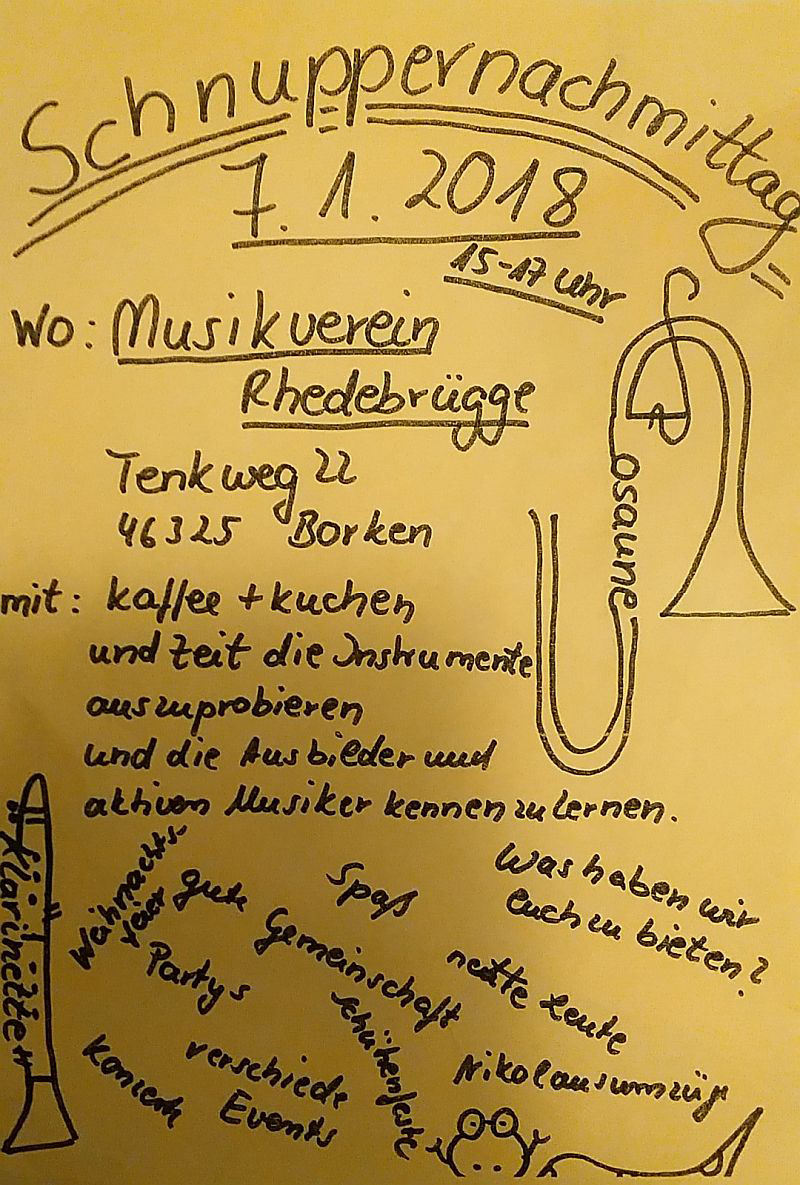 Schnuppernachmittag
7.1.2018
15-17 Uhr
Wo: Musikverein
Rhedebrügge
Tenkweg 22
46325 Borken
mit: Kaffee + Kuchen
und Zeit die Instrumente
auszuprobieren
und die Ausbilder und
aktiven Musiker kennenzulernen.
Posaune
"Klarinette"
Was haben wir
euch zu bieten?
Weihnachts-
feier
gute
Gemeinschaft
Spaß
nette Leute
Partys
Schützenfeste
Nikolausumzüge
Konzerte
verschiede
Events